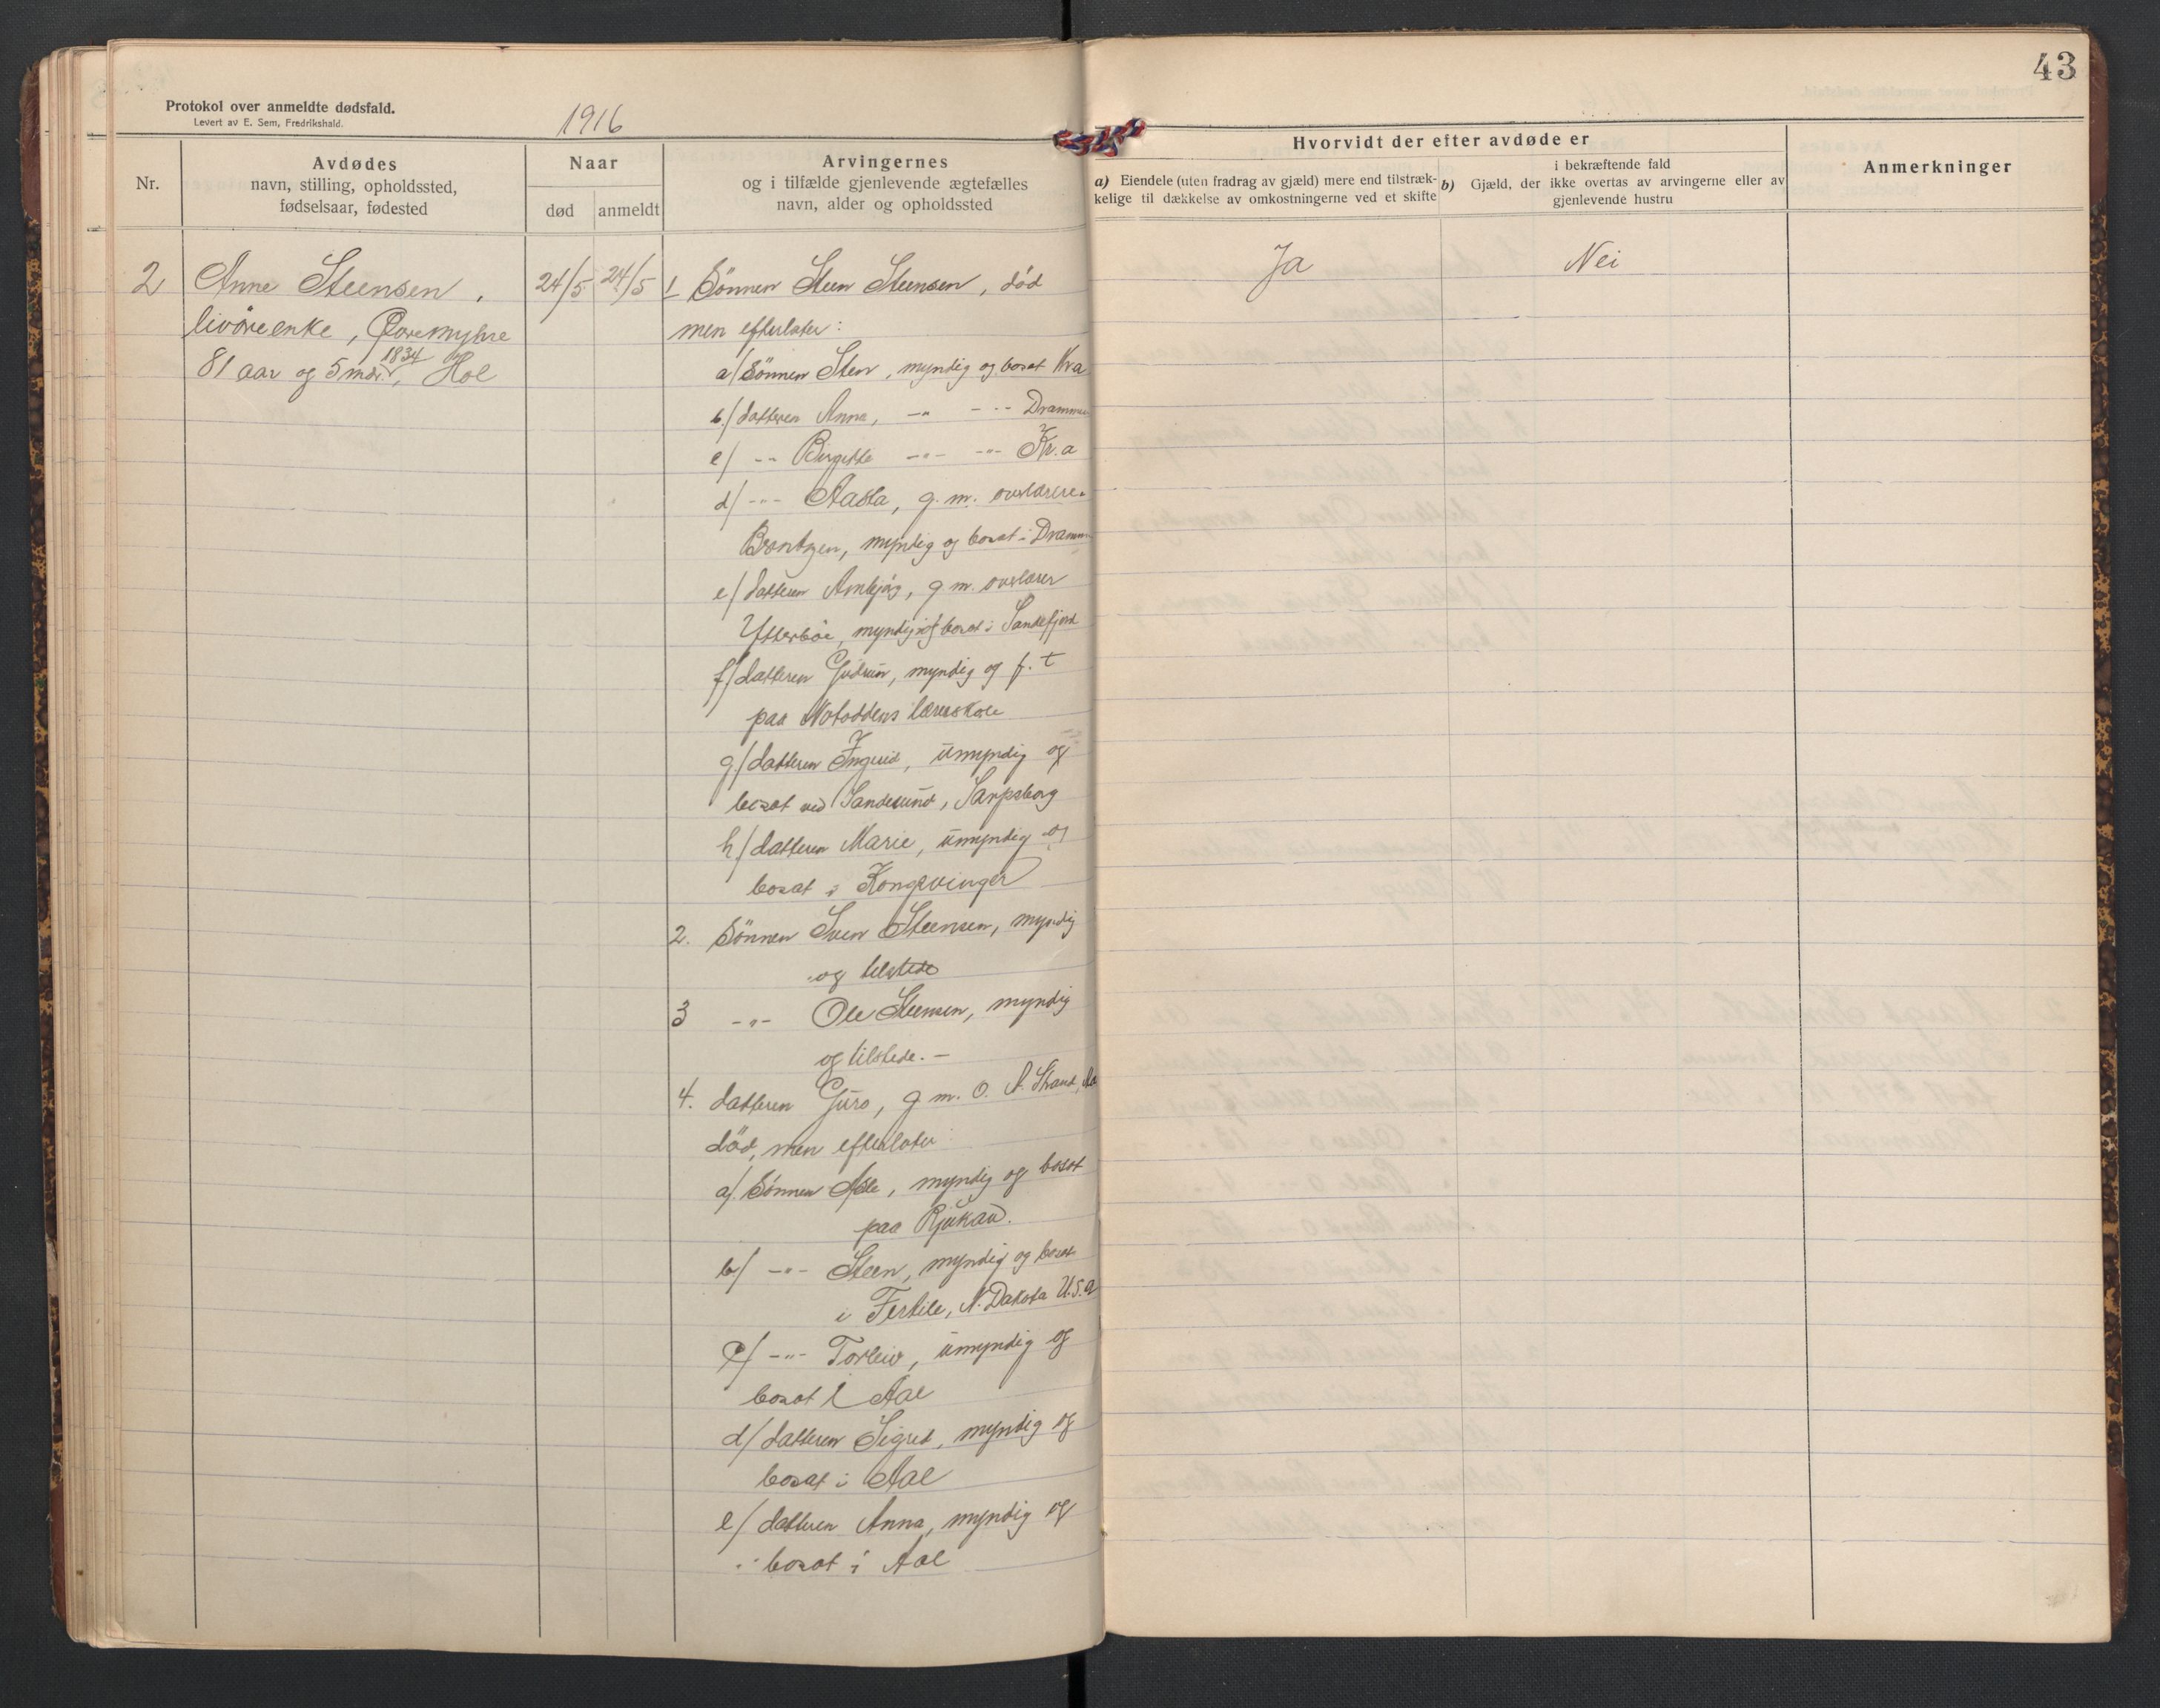 43
Protokol over anmeldte dødsfald.
Levert av E. Sem, Fredrikshald.
1916
Nr.
Avdødes
navn, stilling, opholdssted,
fødselsaar, fødested
Naar
død
anmeldt
Arvingernes
og i tilfælde gjenlevende ægtefælles
navn, alder og opholdssted
Hvorvidt der efter avdøde er
a) Eiendele (uten fradrag av gjæld) mere end tilstræk-
kelige til dækkelse av omkostningerne ved et skifte
i bekræftende fald
b) Gjæld, der ikke overtas av arvingerne eller av
gjenlevende hustru
Anmerkninger
2
Anne Steensen,
livöreenke, Övremyhre
81 aar og 5 mdr. 1834, Hol
24/5
24/5
1 Sönnen Steen Steensen, död
men efterlater:
a/ Sönnen Sten, myndig og bosat Kr.a
b./ datteren Anna, -"- -"- Drammen
c/ -"- Birgitte -"- -"- Kr.a
d/ -"- Aasta, g. m. overlærer
Berntzen, myndig og bosat i Dramm
e/ datteren Ambjög, g. m. overlærer
Ytterböe, myndig og bosat i Sandefjord
f/ datteren Gudrun, myndig og f. t
paa Notoddens lærerskole
g/ datteren Ingrid, umyndig og
bosat ved Sandesund, Sarpsborg
h/ datteren Marie, umyndig og
bosat i Kongsvinger
2. Sönnen Sven Steensen, myndig
og tilstede
3 -"- Ole Steensen, myndig
og tilstede. -
4. datteren Guro, g. m. O. A. Strand,
död, men efterlater
a/. Sönnen Asle, myndig og bosat
paa Rjukan.
b/ -"- Steen, myndig og bosat
i Fertile, N. Dakota U.S.a
c/ -"- Torleiv, umyndig og
bosat i Aal
d/ datteren Sigrid, myndig og
bosat i Aal
e/ datteren Anna, myndig og
bosat i Aal
Ja
Nei